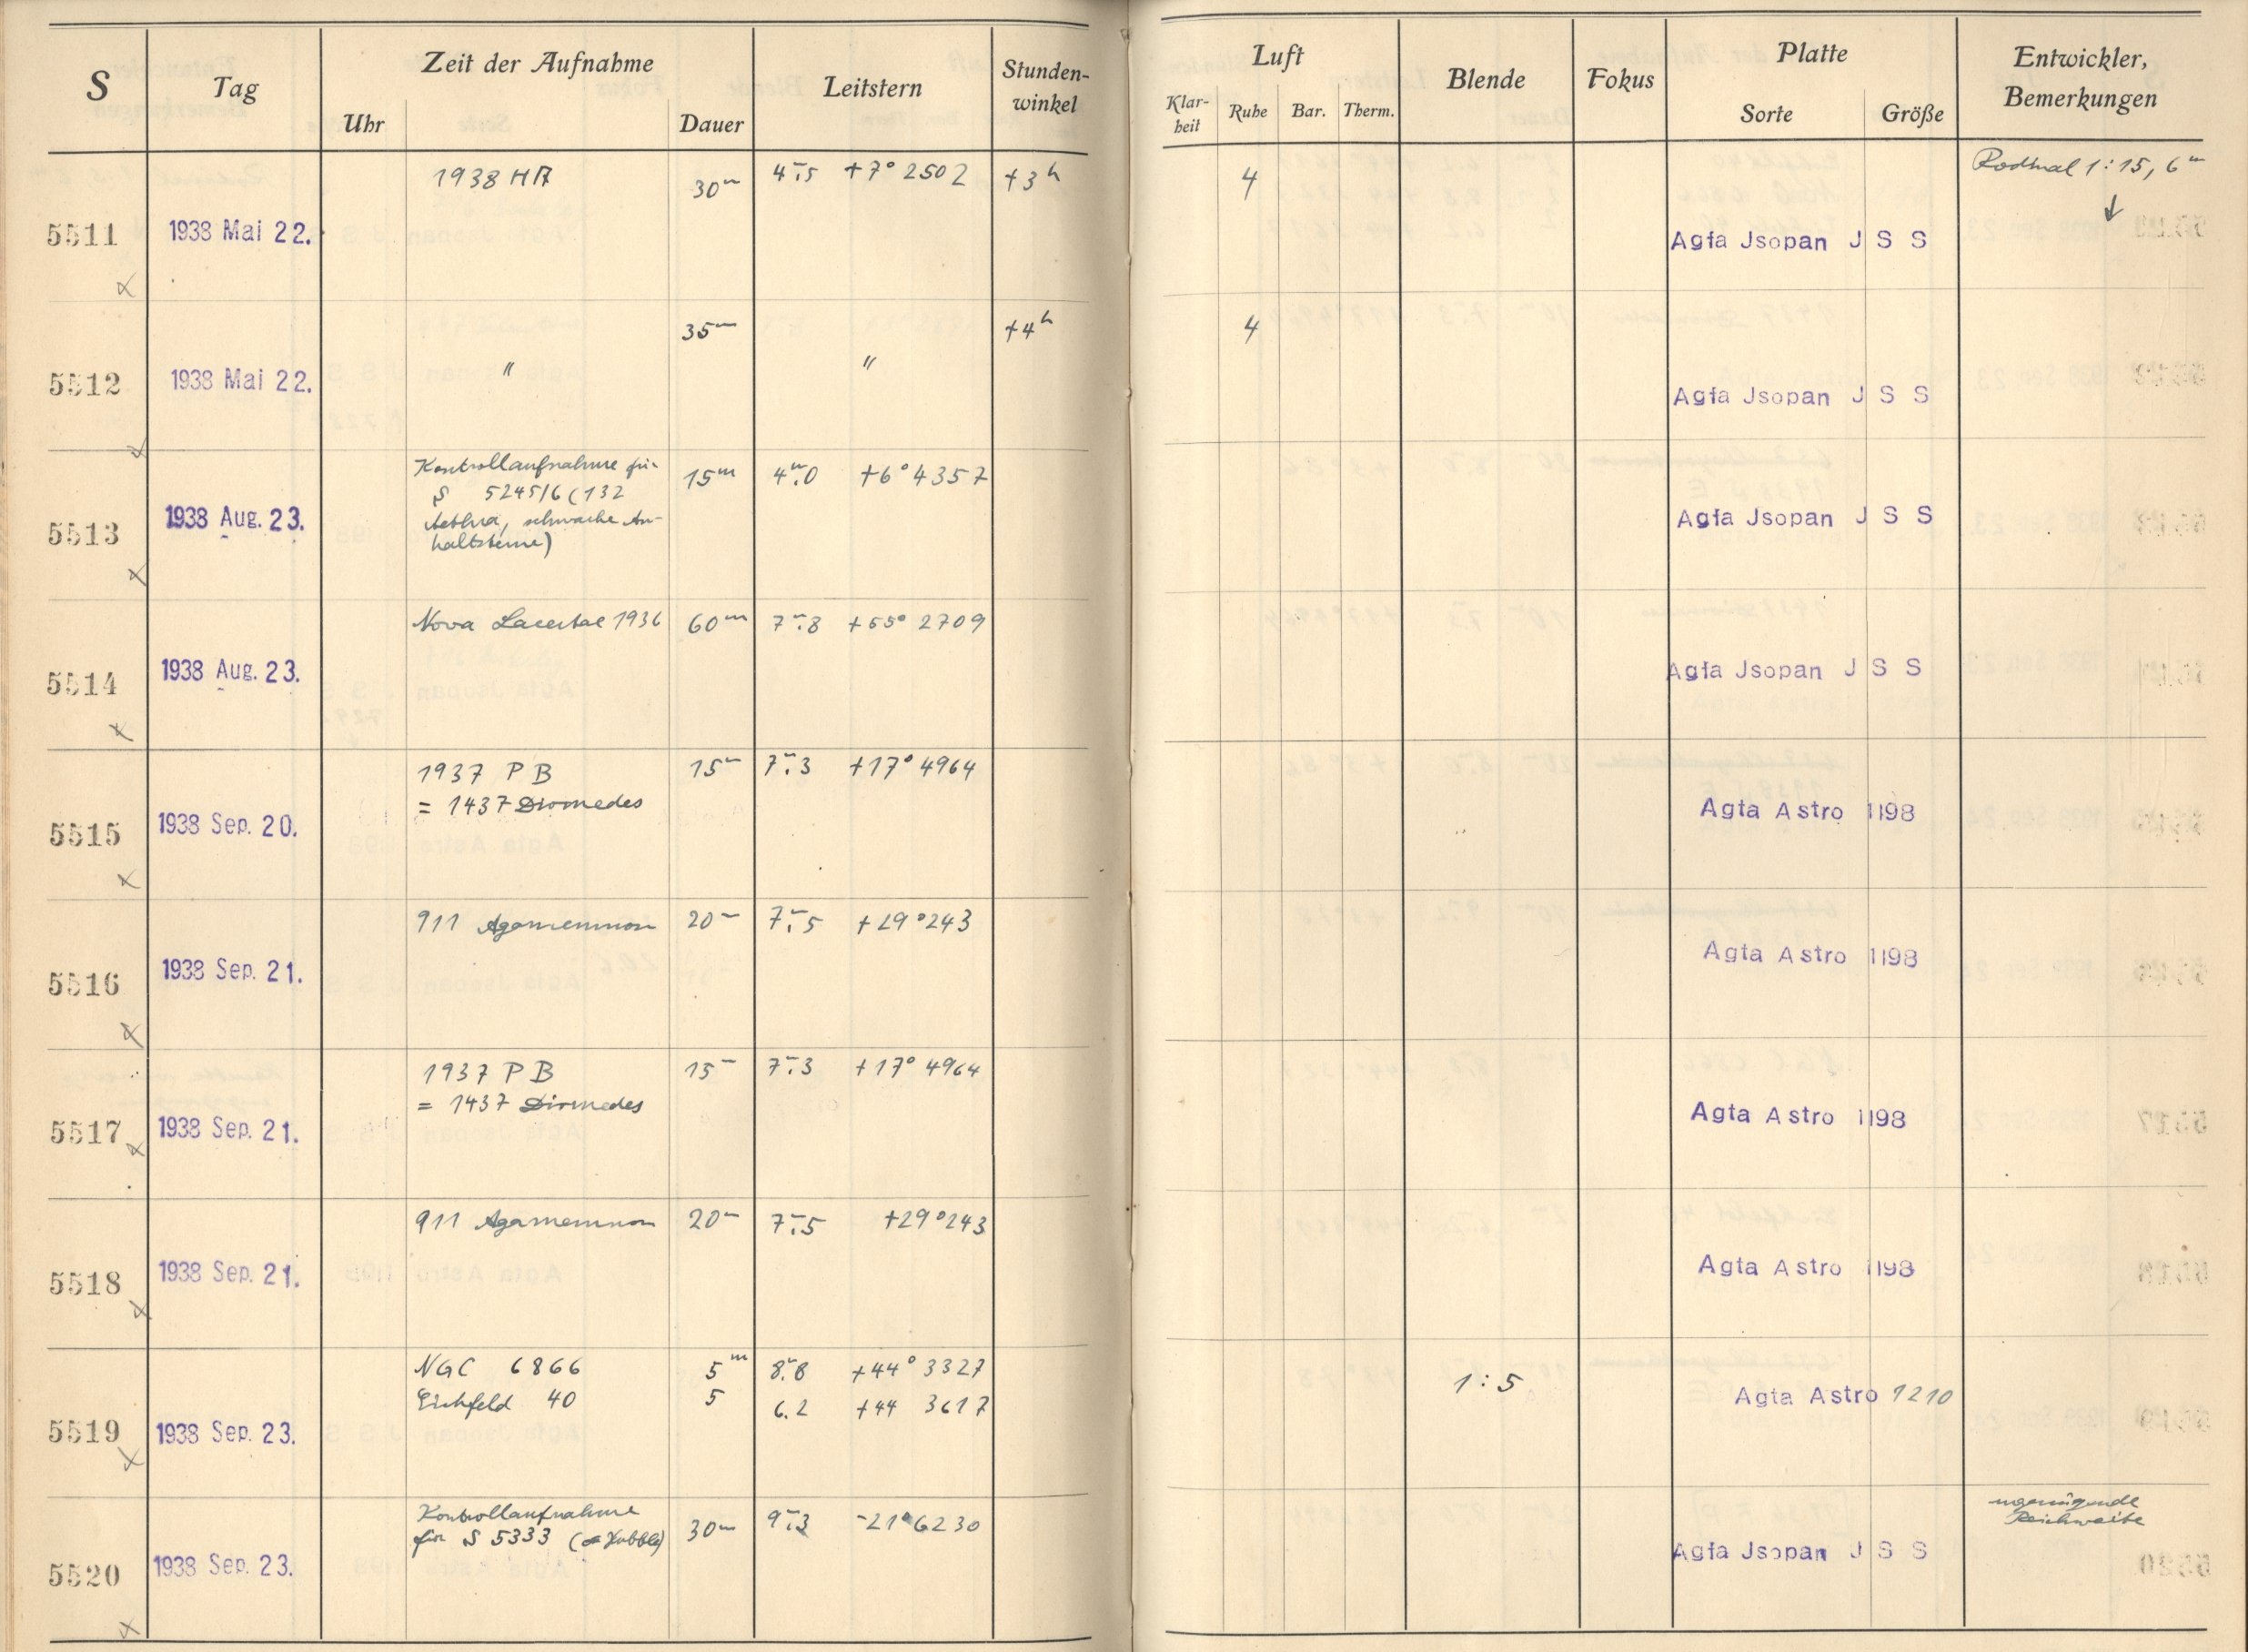 S Tag Zeit der Aufnahme Leitstern Stunden-
winkel
Uhr Dauer
Luft Blende Fokus Platte Entwickler,
Bemerkungen
Klar-
heit Ruhe Bar. Therm. Sorte Größe
1938 HA 30m 4m.5 +7° 2502 +3h 4 Rodinal 1:15, 6m
↓
5511 1938 Mai 22. Agfa Jsopan J S S
35m +4h 4
5512 1938 Mai 22. " " Agfa Jsopan J S S
Kontrollaufnahme für 15m 4m.0 +6° 4357
S 5245/6 (132
5513 1938 Aug. 23. Aethra, schwache An- Agfa Jsopan J S S
haltsterne)
Nova Lacertae 1936 60m 7m.8 +55° 2709
5514 1938 Aug. 23. Agfa Jsopan J S S
1937 PB 15m 7m.3 +17° 4964
= 1437 Diomedes
5515 1938 Sep. 20. Agfa Astro 1198
911 Agamemnon 20m 7m.5 +29° 243
5516 1938 Sep. 21. Agfa Astro 1198
1937 PB 15m 7m.3 +17° 4964
= 1437 Diomedes
5517 1938 Sep. 21. Agfa Astro 1198
911 Agamemnon 20m 7m.5 +29° 243
5518 1938 Sep. 21. Agfa Astro 1198
NGC 6866 5m 8m.8 +44° 3327
Eichfeld 40 5 6.2 +44 3617 1:5
5519 1938 Sep. 23. Agfa Astro 1210
Kontrollaufnahme 30m 9m.3 -21° 6230 ungenügende
für S 5333 (Hubble) Reichweite
5520 1938 Sep. 23. Agfa Jsopan J S S